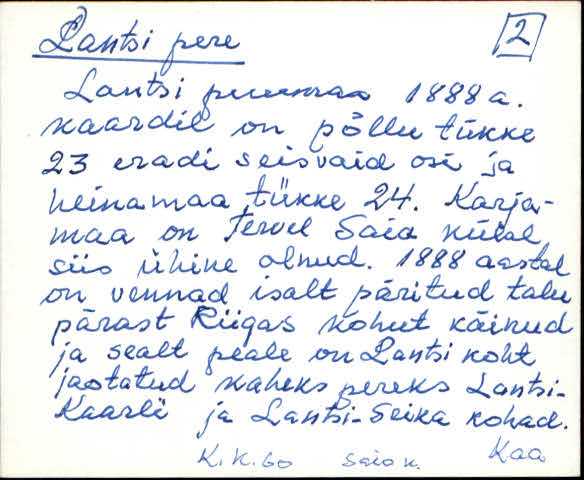 Lantsi pere
2
Lantsi puumaa 1888 a.
kaardil on põllu tükke
23 eradi seisvaid osi ja
heinamaa tükke 24. Karja-
maa on tervel Saia külal
siis ühine olnud. 1888 aastal
on vennad isalt päritud talu
pärast Riigas kohut käinud
ja sealt peale on Lantsi koht
jaotatud kaheks pereks Lantsi-
Kaarli ja Lantsi-Seika kohad.
K.K.60 Saia k. Kaa